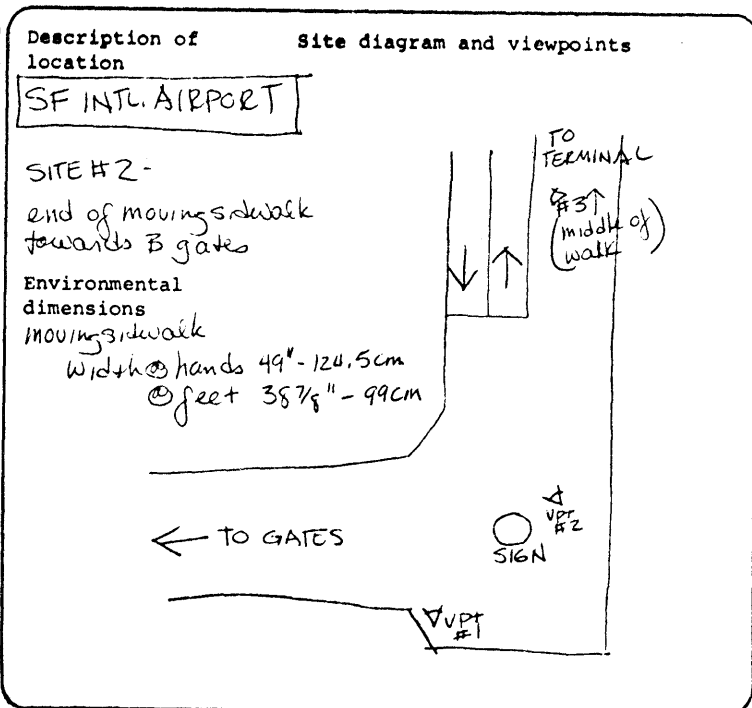 Description of location
Site diagram and viewpoints
SF INTL. AIRPORT
SITE #2-
end of moving sidewalk
towards B gates
Environmental
dimensions
moving sidewalk
width @ hands 49" - 124.5cm
@ feet 38 7/8" - 99cm
TO
TERMINAL
#3↑
(middle of
walk)
← TO GATES
SIGN
VPT
#2
VPT
#1